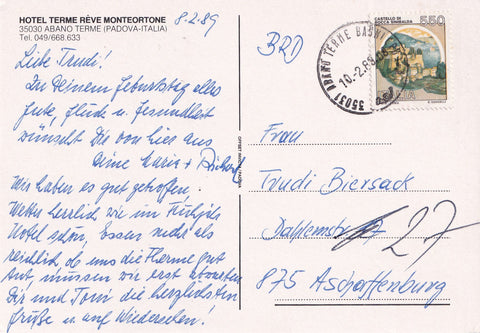 HOTEL TERME RÊVE MONTEORTONE
35030 ABANO TERME (PADOVA-ITALIA)
Tel. 049/668.633
8.2.89
Liebe Trudi!
Zu Deinem Geburtstag alles
Gute, Glück u. Gesundheit
wünscht Dir von hier aus
Deine Maria + Richard
Wir haben es gut getroffen.
Wetter herrlich wie im Frühjahr
Hotel schön, Essen mehr als
reichlich, ob uns die Therme gut
tut, müssen wir erst abwarten
Dir und Toni die herzlichsten
Grüße u. auf Wiedersehen!
OFFSET
BRD
35031 ABANO TERME BAGNI
10.-2.89
CASTELLO DI
ROCCA SINIBALDA
550
Frau
Trudi Biersack
27
875 Aschaffenburg